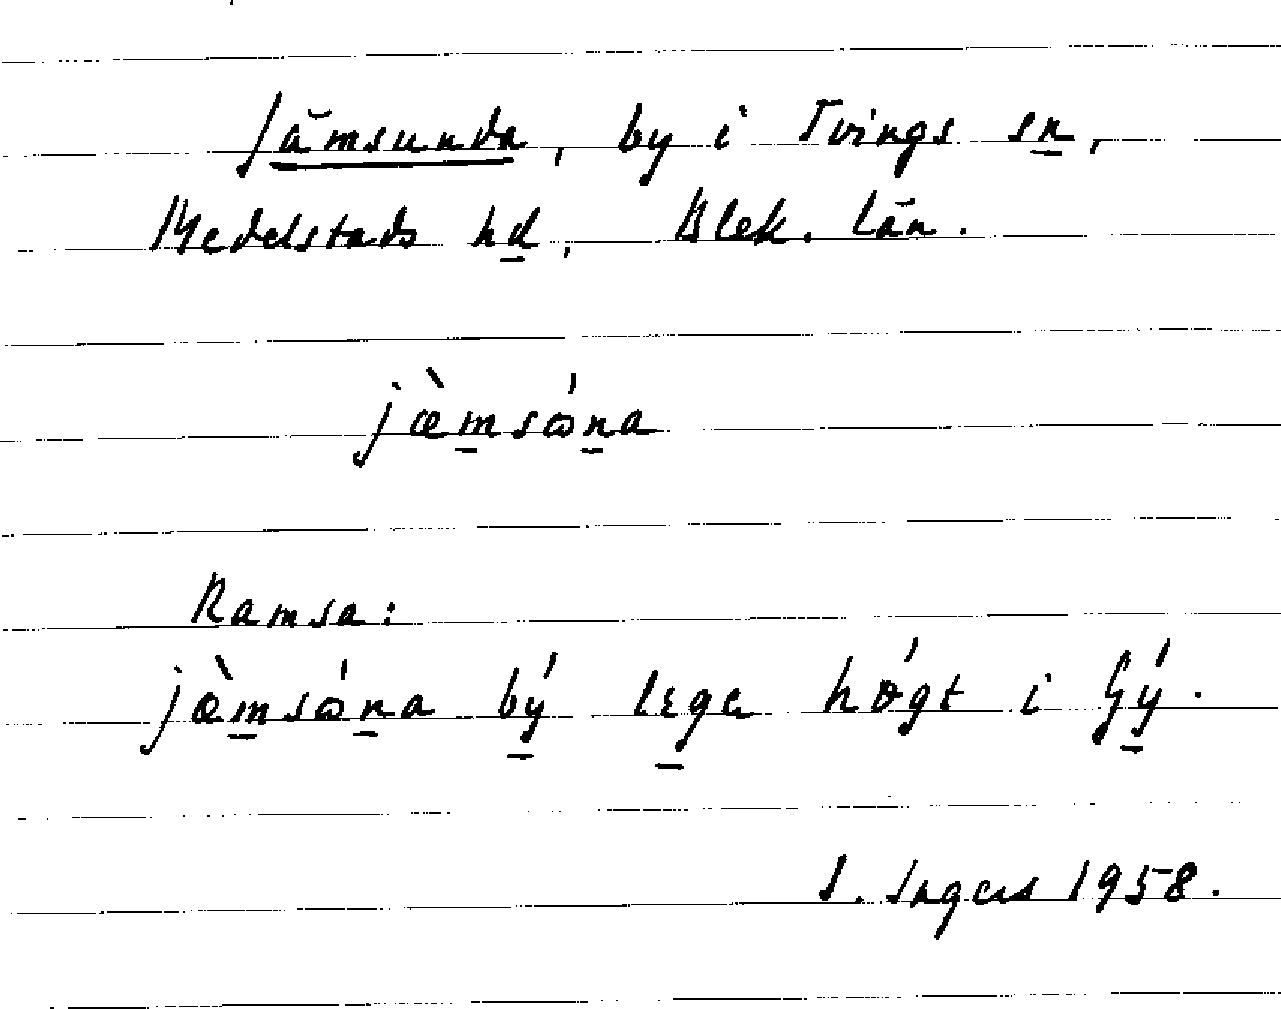 Jämsunda, by i Tvings sn,
Medelstads hd, Blek. län.
jæ̀m̲sɷ́n̲a
Ramsa:
jæ̀m̲sɷ́n̲a bý̲ lɛg̲ɐ hǿgt i Gý̲.
I. Ingers 1958.